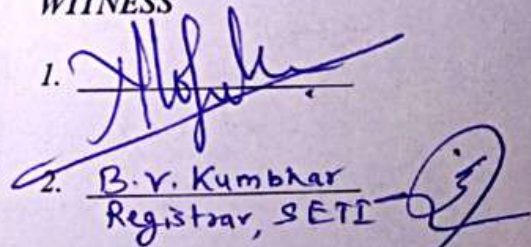 WITNESS
1.
2. B.V. Kumbhar
Registrar, SETI